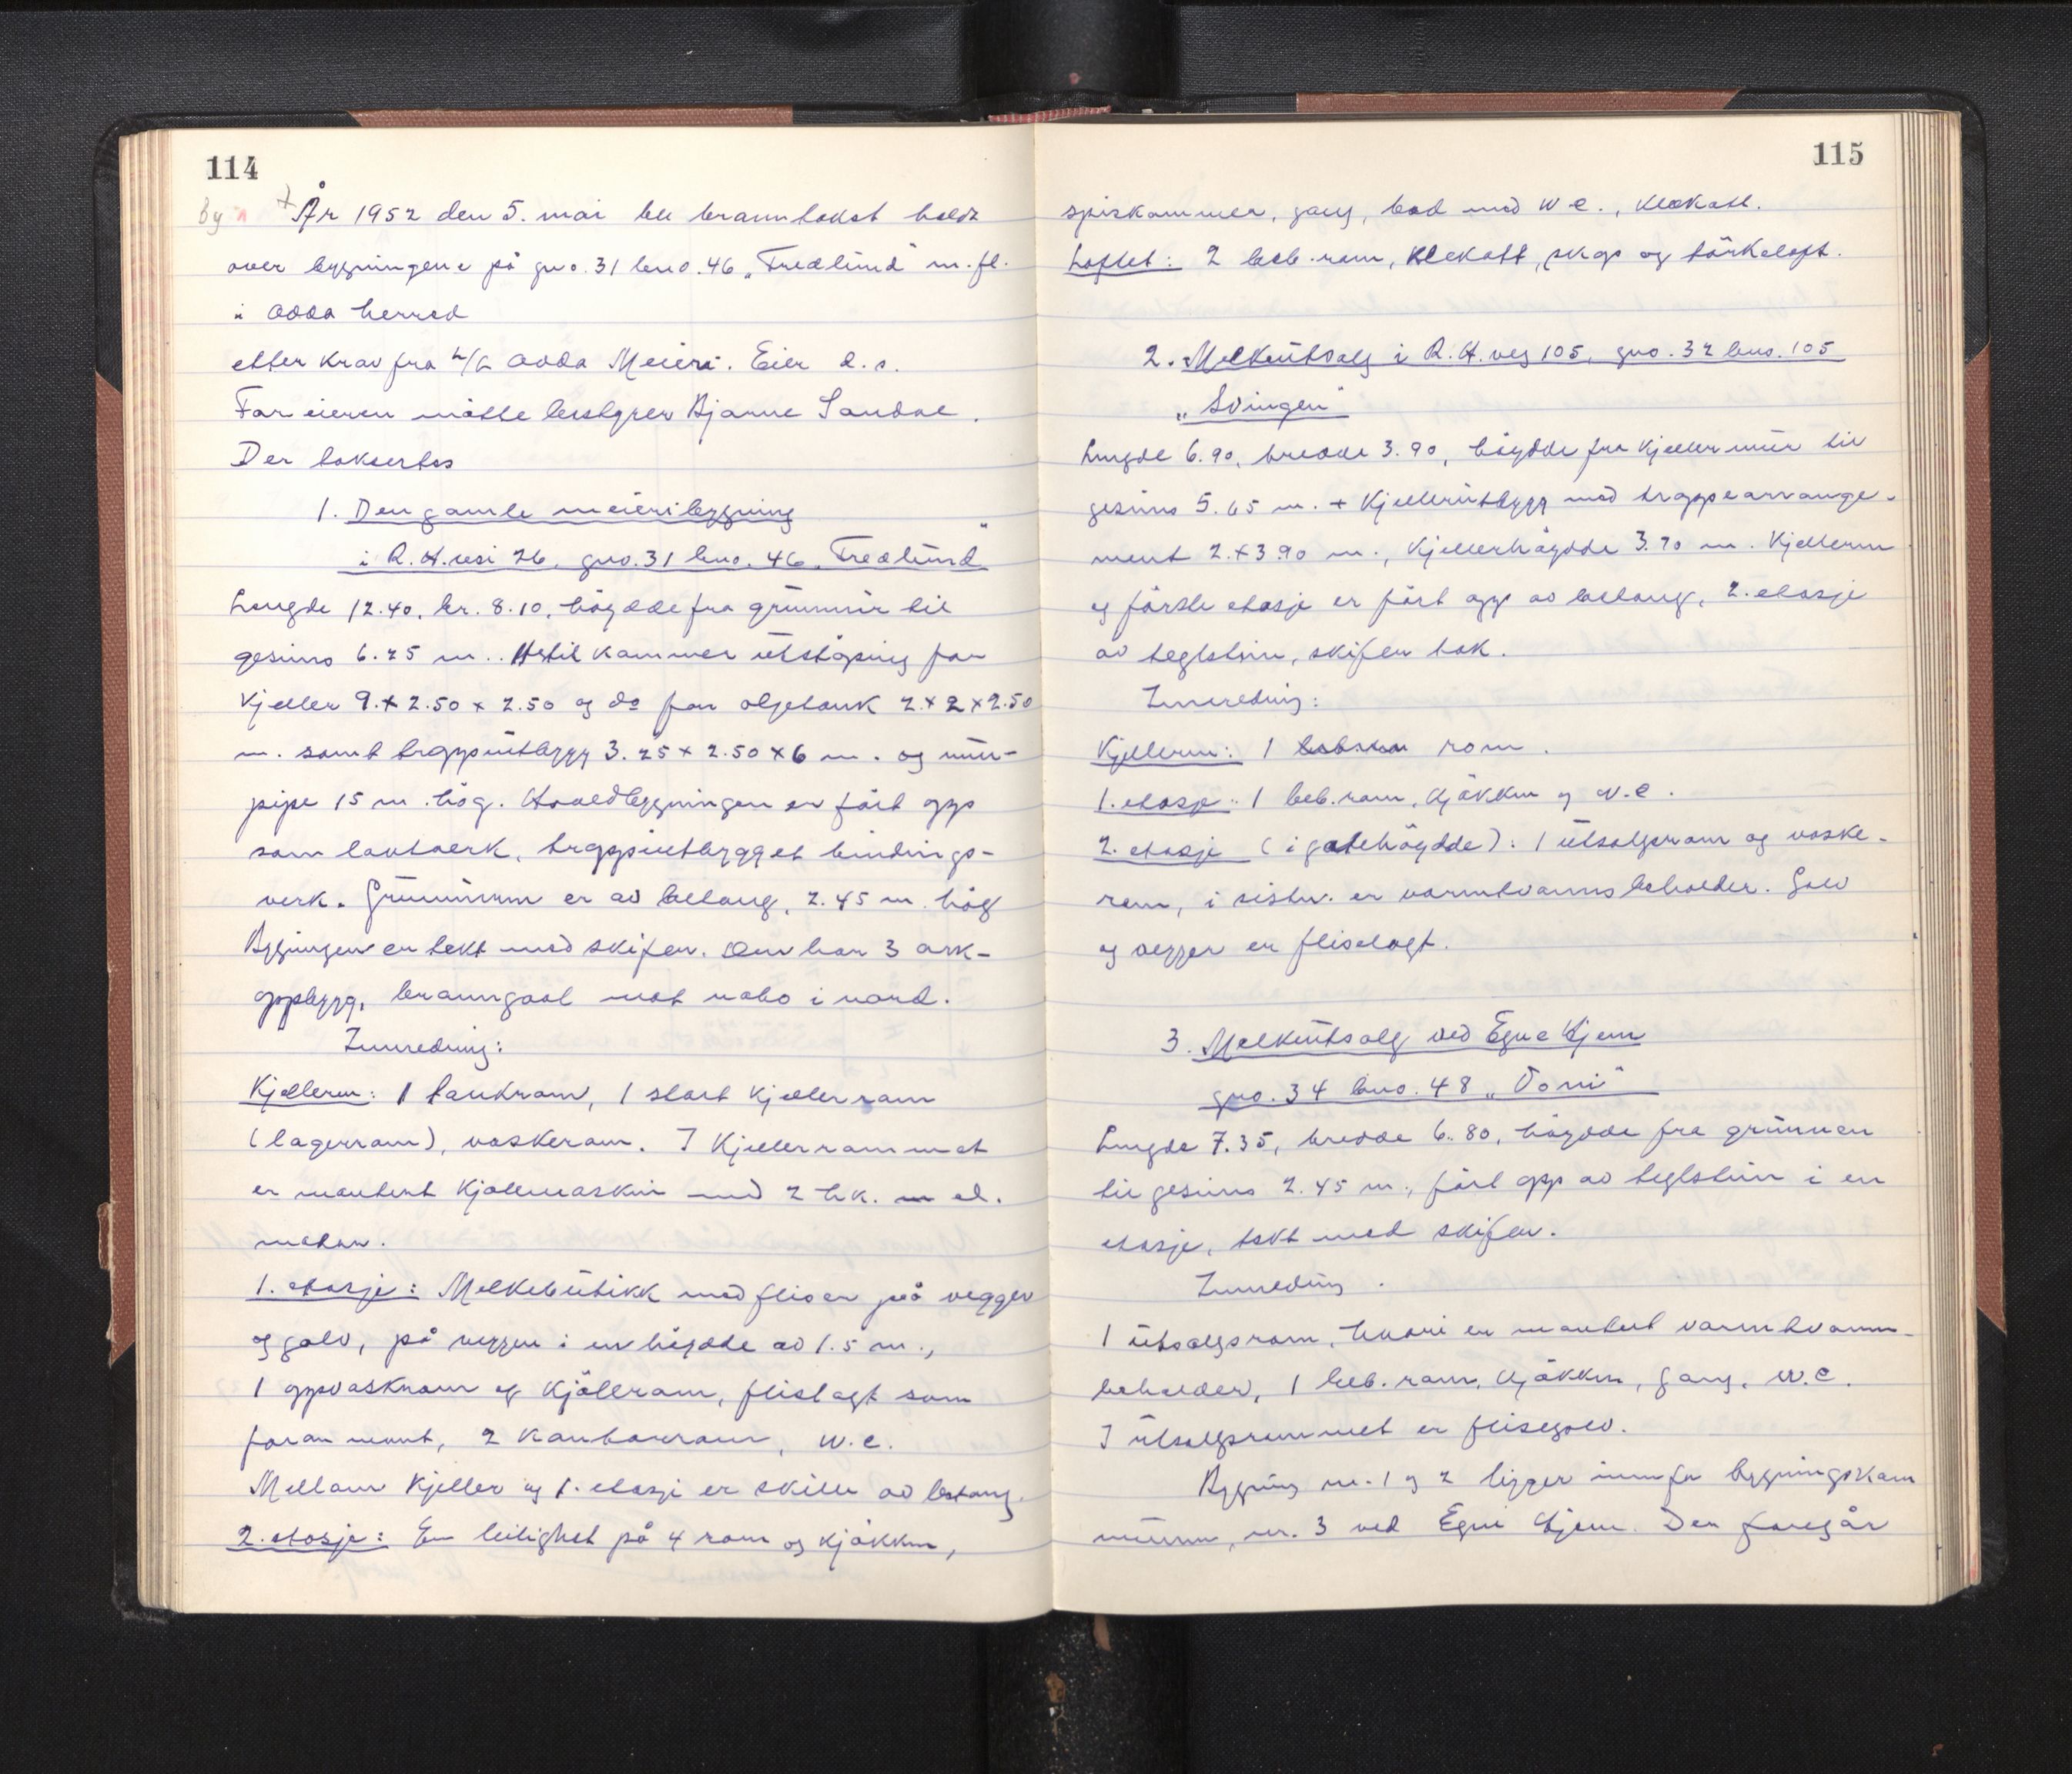 114
by
År 1952 den 5. mai ble branntakst holdt
over bygningene på gno. 31 bno. 46 „Fredlund" m. fl.
i Odda herred
etter krav fra L/L Odda Meieri. Eier d. s.
For eieren møtte bestyrer Bjarne Sandal.
Der taksertes
1. Den gamle meieribygning
i R. H. vei 26, gno. 31 bno. 46 „Fredlund"
Lengde 12.40, br. 8.10, høgdde fra grunnmur til
gesims 6.25 m.. Hertil kommer utstøping for
kjeller 9 x 2.50 x 2.50 og do for oljetank 2 x 2 x 2.50
m. samt trappeutbygg 3.25 x 2.50 x 6 m. og mur-
pipe 15 m. høg. Hovedbygningen er ført opp
som laftverk, trappeutbygget bindings-
verk. Grunnmuren er av betong, 2.45 m. høg
Bygningen er tekt med skifer. Den har 3 ark-
oppbygg, branngavl mot nabo i nord.
Innredning:
Kjelleren: 1 tankrom, 1 stort kjellerrom
(lagerrom), vaskerom. I kjellerrommet
er montert kjølemaskin med 2 hk. el.
motor.
1. etasje: Melkebutikk med fliser på vegger
og golv, på veggen i en høgdde av 1.5 m.,
1 oppvaskrom og kjølerom, flislagt som
foran nevnt, 2 kontorrom, w.c.
Mellom kjeller og 1. etasje er skille av betong.
2. etasje: En leilighet på 4 rom og kjøkken,
115
spiskammer, gang, bad med w.c., klekott.
Loftet: 2 beb. rom, klekott, skap og tørkeloft.
2. Melkeutsalg i R. H. veg 105, gno. 32 bno. 105
„Svingen"
Lengde 6.90, bredde 3.90, høydde fra kjellermur til
gesims 5.65 m. + kjellerutbygg med trappearrange-
ment 2 x 3.90 m., kjellerhøydde 3.70 m. Kjelleren
og første etasje er ført opp av betong, 2. etasje
av teglstein, skifer tak.
Innredning:
Kjelleren: 1 rom.
1. etasje: 1 beb. rom, kjøkken og w.c.
2. etasje (i gatehøydde): 1 utsalgsrom og vaske-
rom, i sistn. er varmtvannsbeholder. Golv
og vegger er fliselagt.
3. Melkeutsalg ved Egne Hjem
gno. 34 bno. 48
Lengde 7.35, bredde 6.80, høydde fra grunnen
til gesims 2.45 m., ført opp av teglstein i en
etasje, tekt med skifer.
Innredning.
1 utsalgsrom, hvori er montert varmtvanns-
beholder, 1 beb. rom, kjøkken, gang, w.c.
I utsalgsrommet er flisegolv.
Bygning nr. 1 og 2 ligger innfor bygningskom
munen, nr. 3 ved Egne Hjem. Der foregår